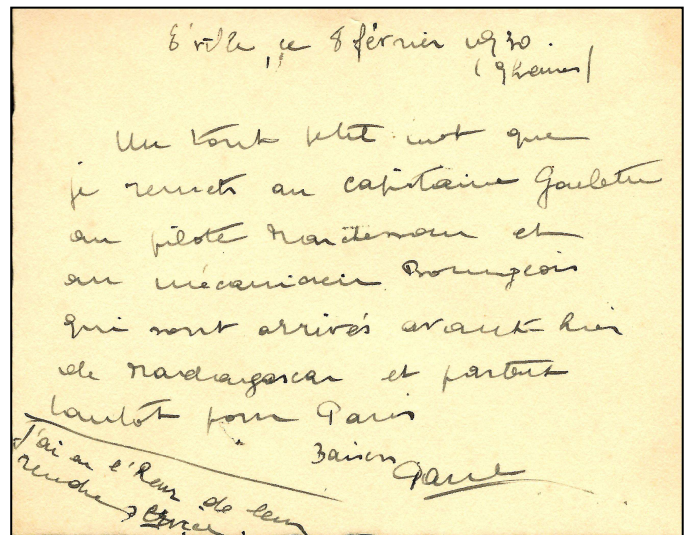 E'ville, ce 8 février 1930.
(9 heures)
Un tout petit mot que
je remets au capitaine Goulette
au pilote Marchesseau et
au mécanicien Bourgeois
qui sont arrivés avant-hier
de Madagascar et partent
tantôt pour Paris
Baisers
J'ai eu l'heur de leur
rendre service.